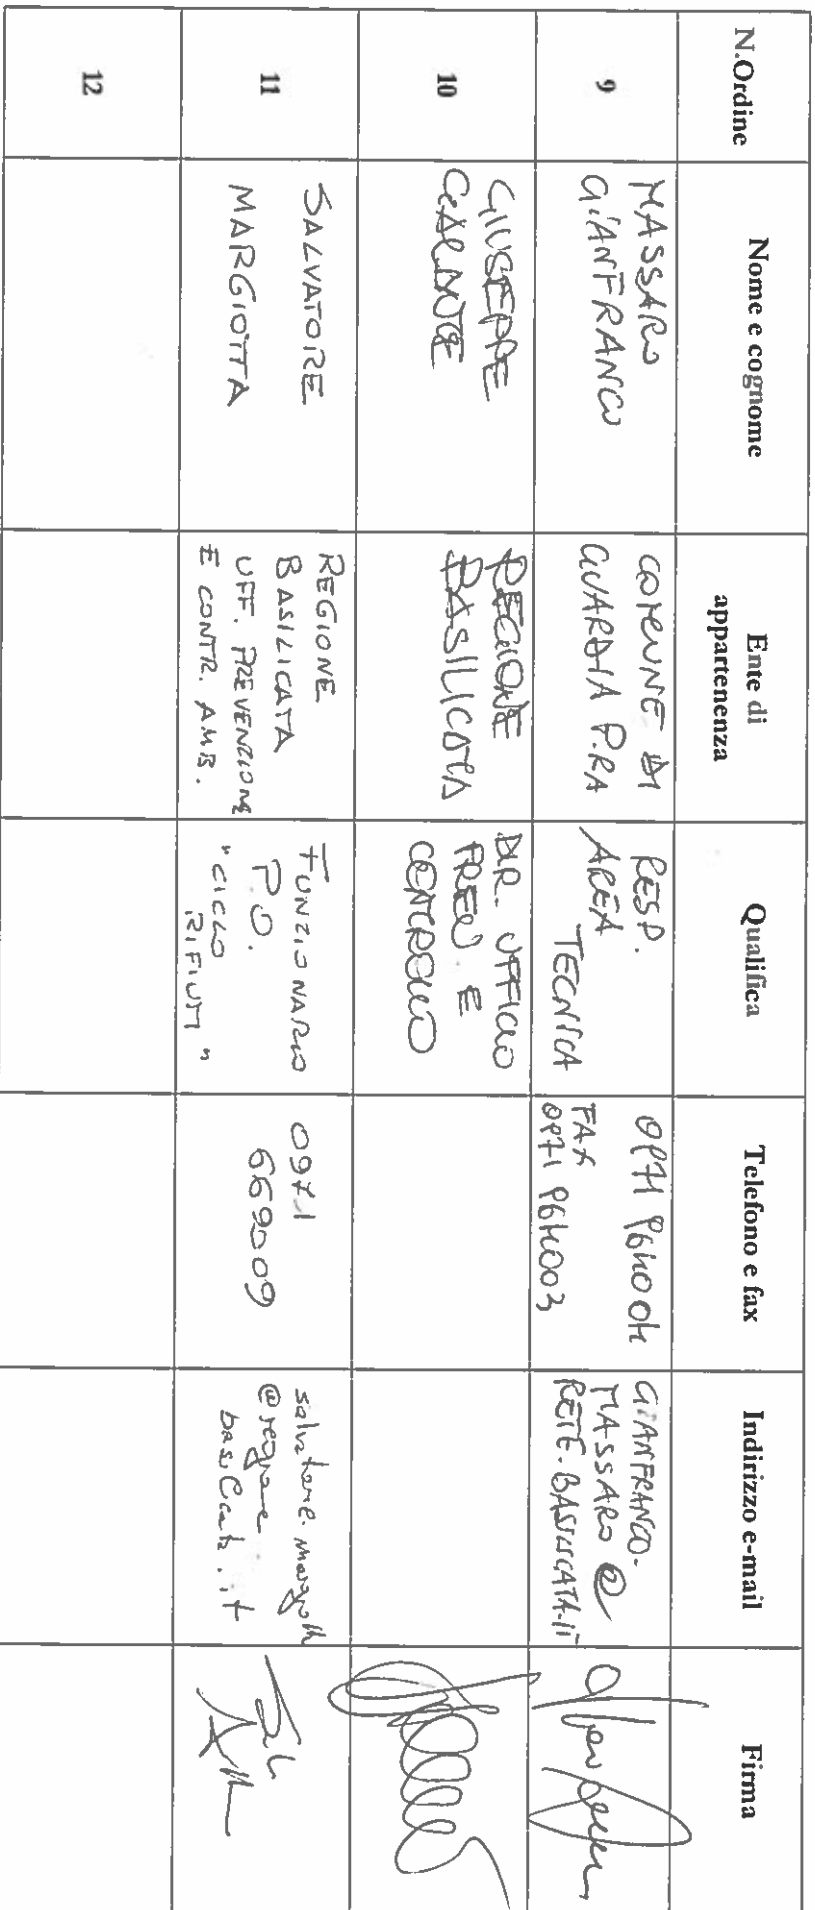 N.Ordine
Nome e cognome
Ente di
appartenenza
Qualifica
Telefono e fax
Indirizzo e-mail
Firma
9
MASSARO
GIANFRANCO
COMUNE DI
GUARDIA P.RA
RESP.
AREA
TECNICA
0971 964004
FAX
0971 964003
GIANFRANCO.
MASSARO@
RETE.BASILICATA.IT
10
GIUSEPPE
GALANTE
REGIONE
BASILICATA
DIR. UFFICIO
PREV E
CONTROLLO
11
SALVATORE
MARGIOTTA
REGIONE
BASILICATA
UFF. PREVENZIONE
E CONTR. AMB.
FUNZIONARIO
P.O.
"CICLO
RIFIUTI"
0971
669009
salvatore.
@regione
basilicata.it
12